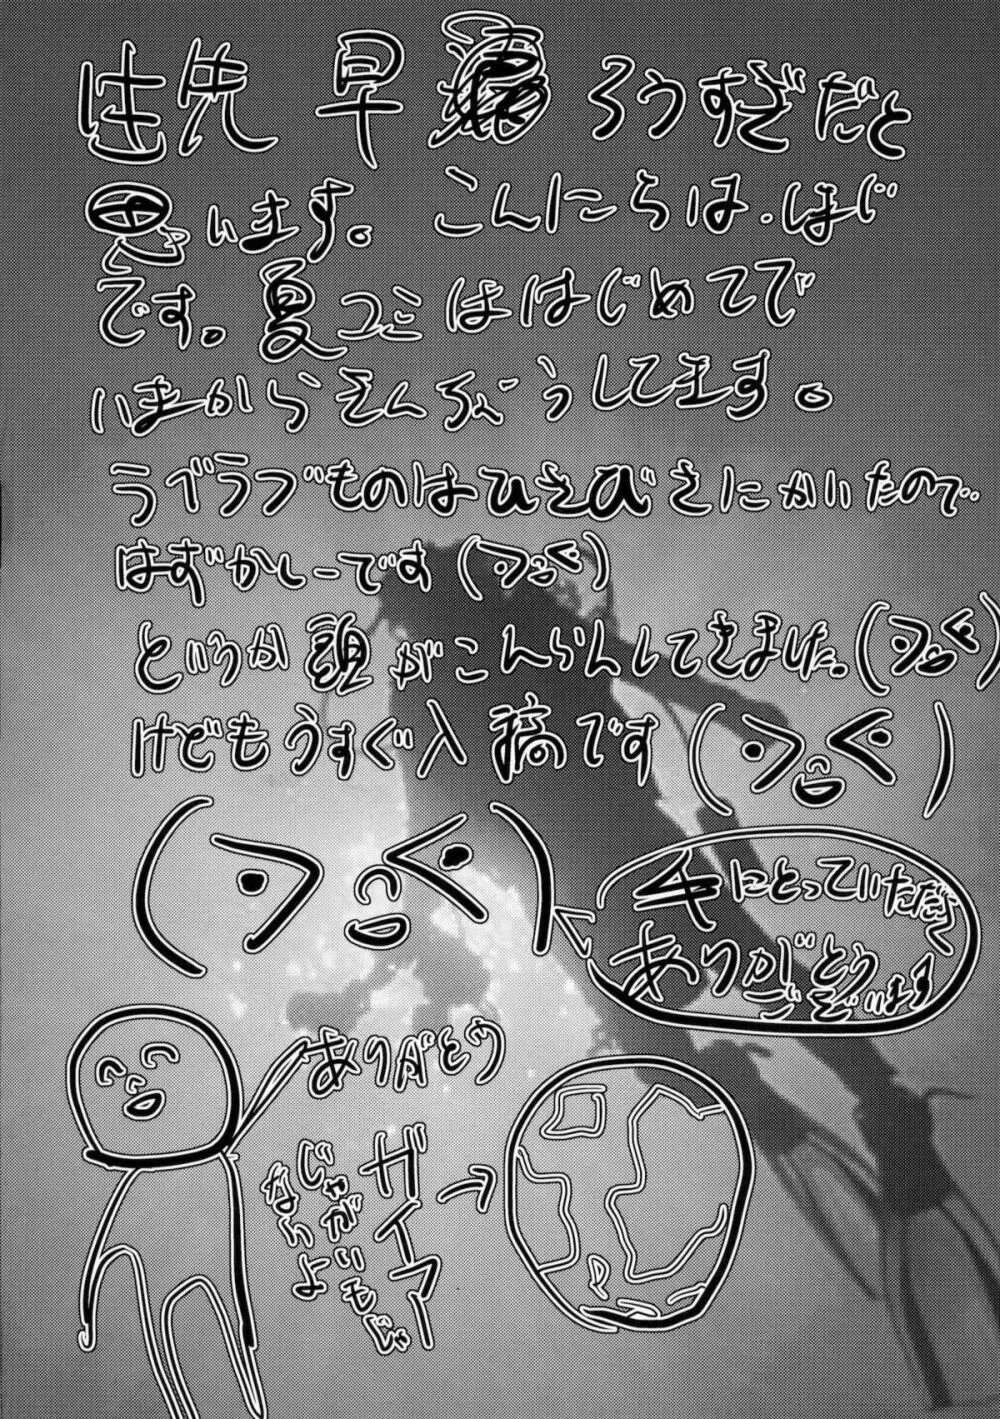 早 ろうすぎだと
思います。 こんにちは.ほじ
です。夏コミははじめてで
いまからぞんぶうしてます。
ラブラブものはひさびさにかいたので..
はずかしーです
というか頭がこんらんしてきました.
けどもうすぐ入稿です
手にとっていただく
ありがとう
ございます
ありがとう
ガイアー
じゃがいもじゃ
ないよ